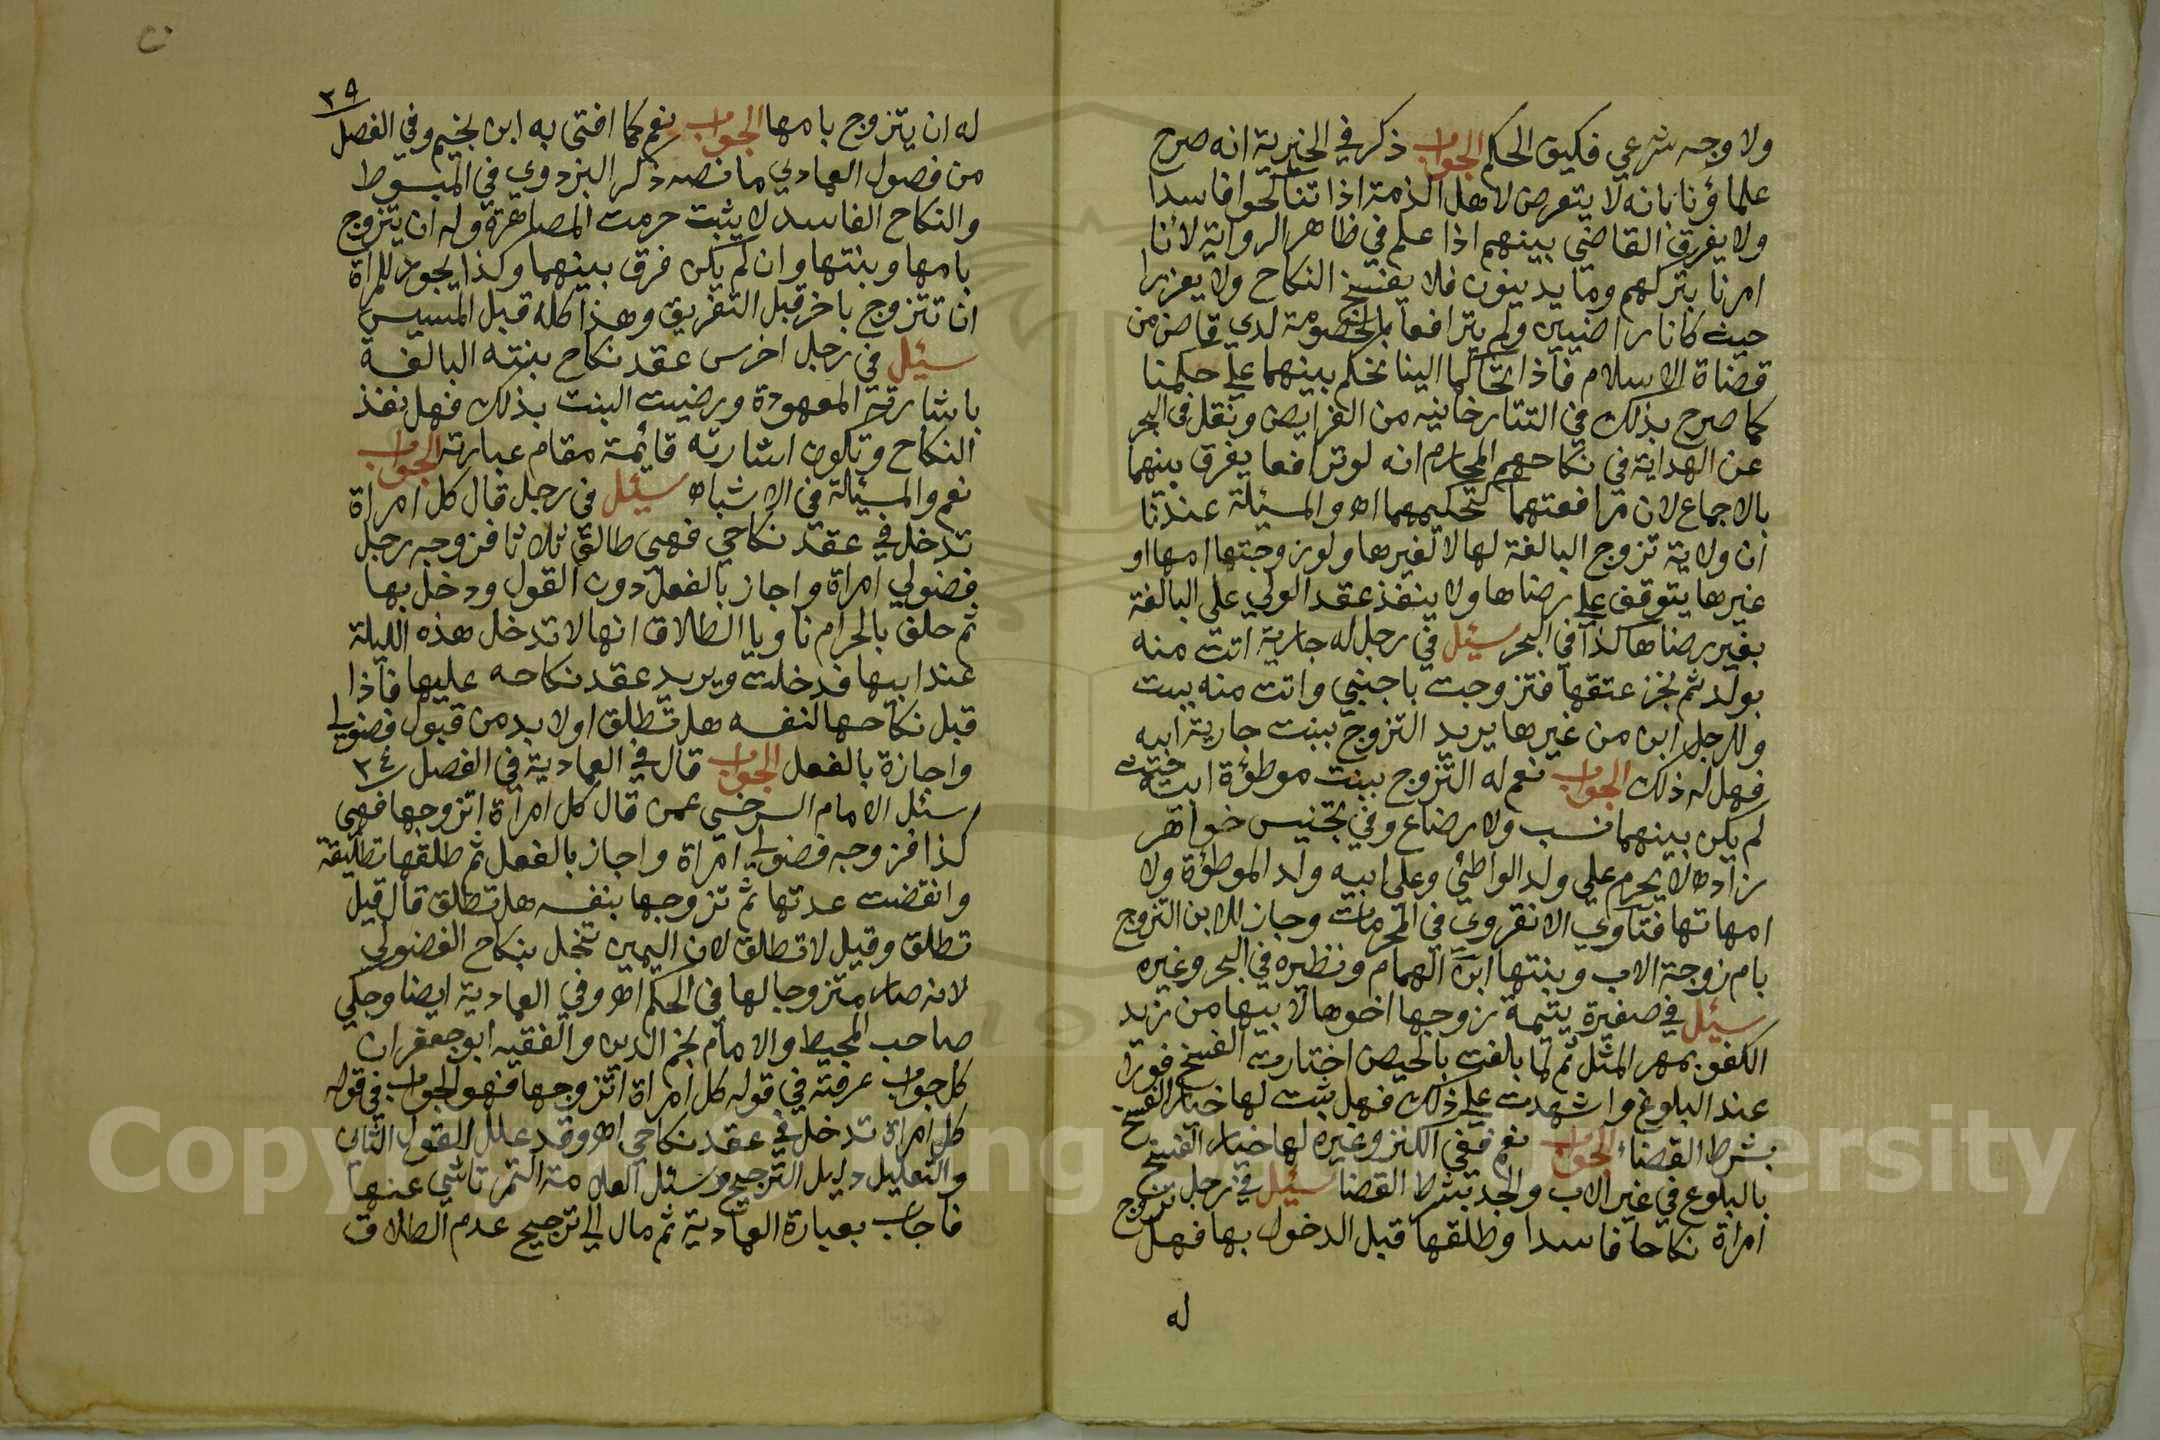 ولا وجه شرعي فكيف الحكم الجواب ذكر في الخيرية انه صرح
علماؤنا بانه لا يتعرض لاهل الذمة اذا تناكحوا فاسدا
ولا يفرق القاضي بينهم اذا علم في ظاهر الرواية لاننا
امرنا بتركهم وما يدينون فلا يفسخ النكاح ولا يعزرا
حيث كانا راضيين ولم يترافعا بالخصومة لدي قاض من
قضاة الاسلام فاذا تحاكما الينا نحكم بينهما علي حكمنا
كما صرح بذلك في التتارخانيه من الفرايض ونقل في البحر
عن الهداية في نكاحهم المحارم انه لو ترافعا يفرق بينهما
بالاجماع لان مرافعتهما كتحكيمهما اه والمسئلة عندنا
ان ولاية تزوج البالغة لها لا لغيرها ولو زوجتها امها او
غيرها يتوقف علي رضاها ولا ينفذ عقد الولي علي البالغة
بغير رضاها كذا في البحر سئل في رجل له جارية اتت منه
بولد ثم نجز عتقها فتزوجت باجنبي واتت منه ببنت
وللرجل ابن من غيرها يريد التزوج ببنت جارية ابيه
فهل له ذلك الجواب نعم له التزوج ببنت موطؤة ابيه حيث
لم يكن بينهما نسب ولا رضاع وفي تجنيس خواهر
زاده لا يحرم علي ولد الواطئ وعلي ابيه ولد الموطؤة ولا
امهاتها فتاوي الانقروي في المحرمات وجاز للابن التزوج
بام زوجة الاب وبنتها ابن الهمام ونظيره في البحر وغيره
سئل في صغيرة يتيمة زوجها اخوها لابيها من زيد
الكفؤ بمهر المثل ثم لما بلغت بالحيض اختارت الفسخ فورا
عند البلوغ واشهدت علي ذلك فهل يثبت لها خيار الفسخ
بشرط القضاء الجواب نعم ففي الكنز وغيره لها خيار الفسخ
بالبلوغ في غير الاب والجد بشرط القضا سئل في رجل تزوج
امراة نكاحا فاسدا وطلقها قبل الدخول بها فهل
له
٣٩
له ان يتزوج بامها الجواب نعم كما افتى به ابن نجيم وفي الفصل
من فصول العمادي ما نصه ذكر البزدوي في المبسوط
والنكاح الفاسد لا يثبت حرمت المصاهرة وله ان يتزوج
بامها وبنتها وان لم يكن فرق بينهما وكذا يجوز للمراة
ان تتزوج باخر قبل التفريق وهذا كله قبل المسيس
سئل في رجل اخرس عقد نكاح بنته البالغة
باشارته المعهودة ورضيت البنت بذلك فهل نفذ
النكاح وتكون اشارته قائمة مقام عبارته الجواب
نعم والمسئالة في الاشباه سئل في رجل قال كل امراة
تدخل في عقد نكاحي فهي طالق ثلاثا فزوجه رجل
فضولي امراة واجاز بالفعل دون القول ودخل بها
ثم حلف بالحرام ناويا الطلاق انها لا تدخل هذه الليلة
عند ابيها فدخلت ويريد عقد نكاحه عليها فاذا
قبل نكاحها لنفسه هل تطلق او لا بد من قبول فضولي
واجازة بالفعل الجواب قال في العمادية في الفصل ٢٤
سئل الامام السرخسي عمن قال كل امراة اتزوجها فهي
كذا فزوجه فضولي امراة واجاز بالفعل ثم طلقها تطليقة
وانقضت عدتها ثم تزوجها بنفسه هل تطلق قال قيل
تطلق وقيل لا تطلق لان اليمين تنحل بنكاح الفضولي
لانه صار متزوجا لها في الحكم اه وفي العمادية ايضا وحكي
صاحب المحيط والامام نجم الدين والفقيه ابو جعفر ان
كل جواب عرفته في قوله كل امراة اتزوجها فهو الجواب في قوله
كل امراة تدخل في عقد نكاحي اه وقد علل القول الثاني
والتعليل دليل الترجيح وسئل العلامة التمرتاشي عنها
فاجاب بعبارة العمادية ثم مال الي ترجيح عدم الطلاق